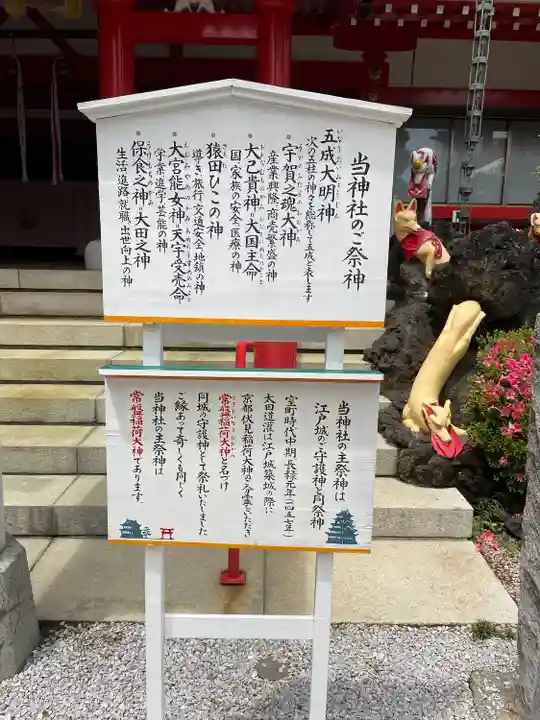 当神社のご祭神
五成大明神
次の五社の神々を総称して五成と表します
宇賀之魂大神
産業興隆・商売繁盛の神
大己貴神=大国主命
国・家族の安全・医療の神
猿田ひこの神
導き・旅行・交通安全・地鎮の神
大宮能女神=天宇受売命
学業・進学・芸能の神
保食之神=大田之神
生活・進路・就職・出世向上の神
当神社の主祭神は
江戸城のご守護神と同祭神
室町時代中期・長禄元年(一四五七年)
太田道灌は江戸城築城の際に
京都伏見稲荷大神のご分霊をいただき
常盤稲荷大神と名づけ
同城の守護神として祭礼いたしました
ご縁あって奇しくも同じく
当神社の主祭神は
常盤稲荷大神であります。